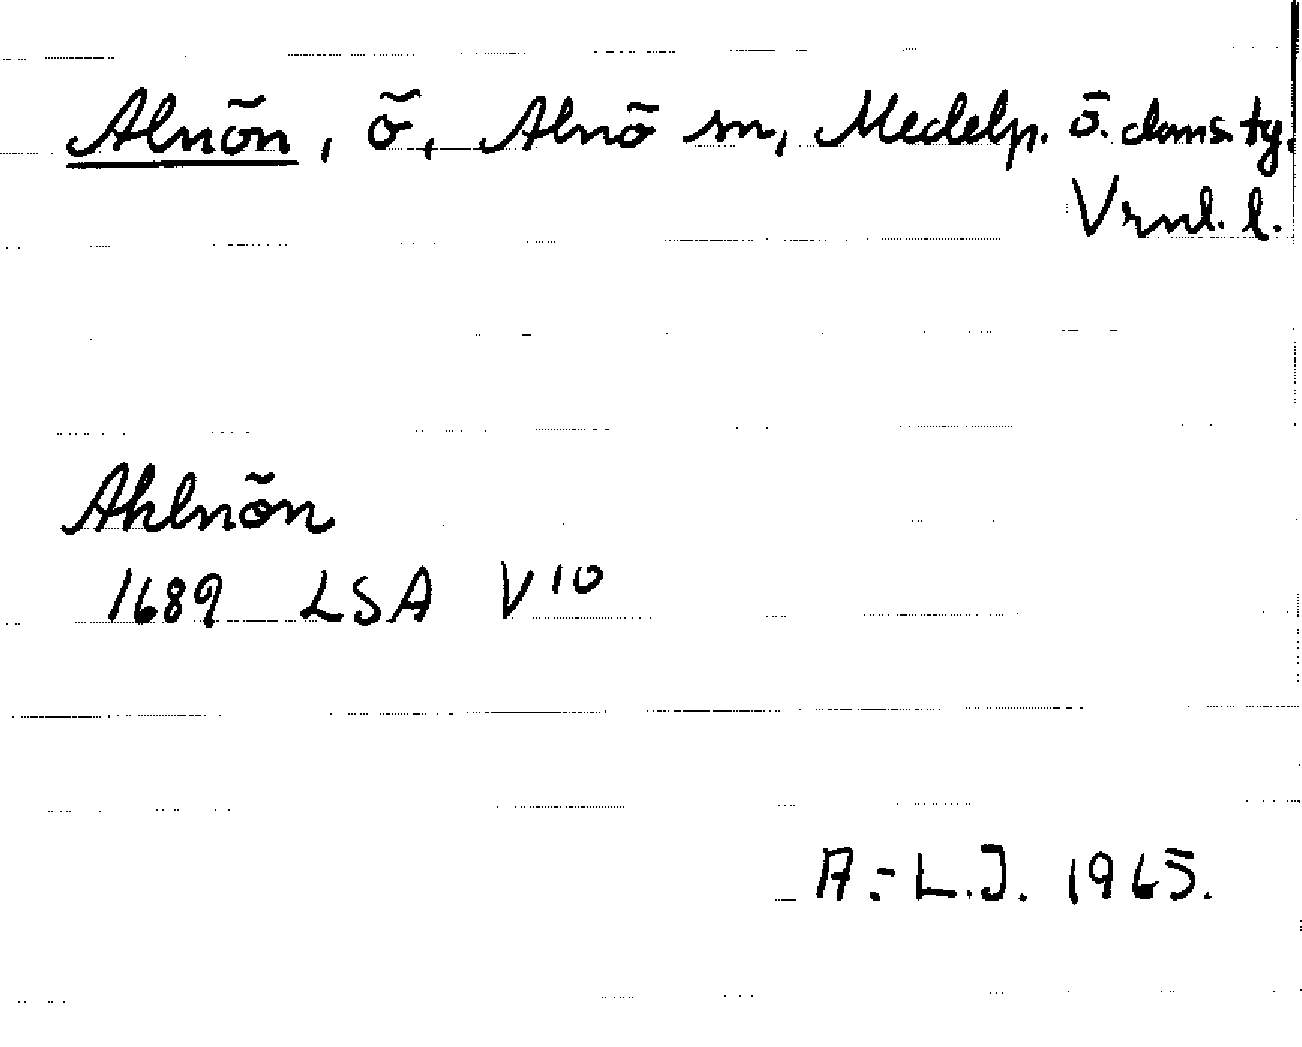 Alnön, ö, Alnö sn, Medelp. ö. doms. tg.
Vrnl. l.
Ahlnön
1689 LSA V 10
A.-L.J. 1965.